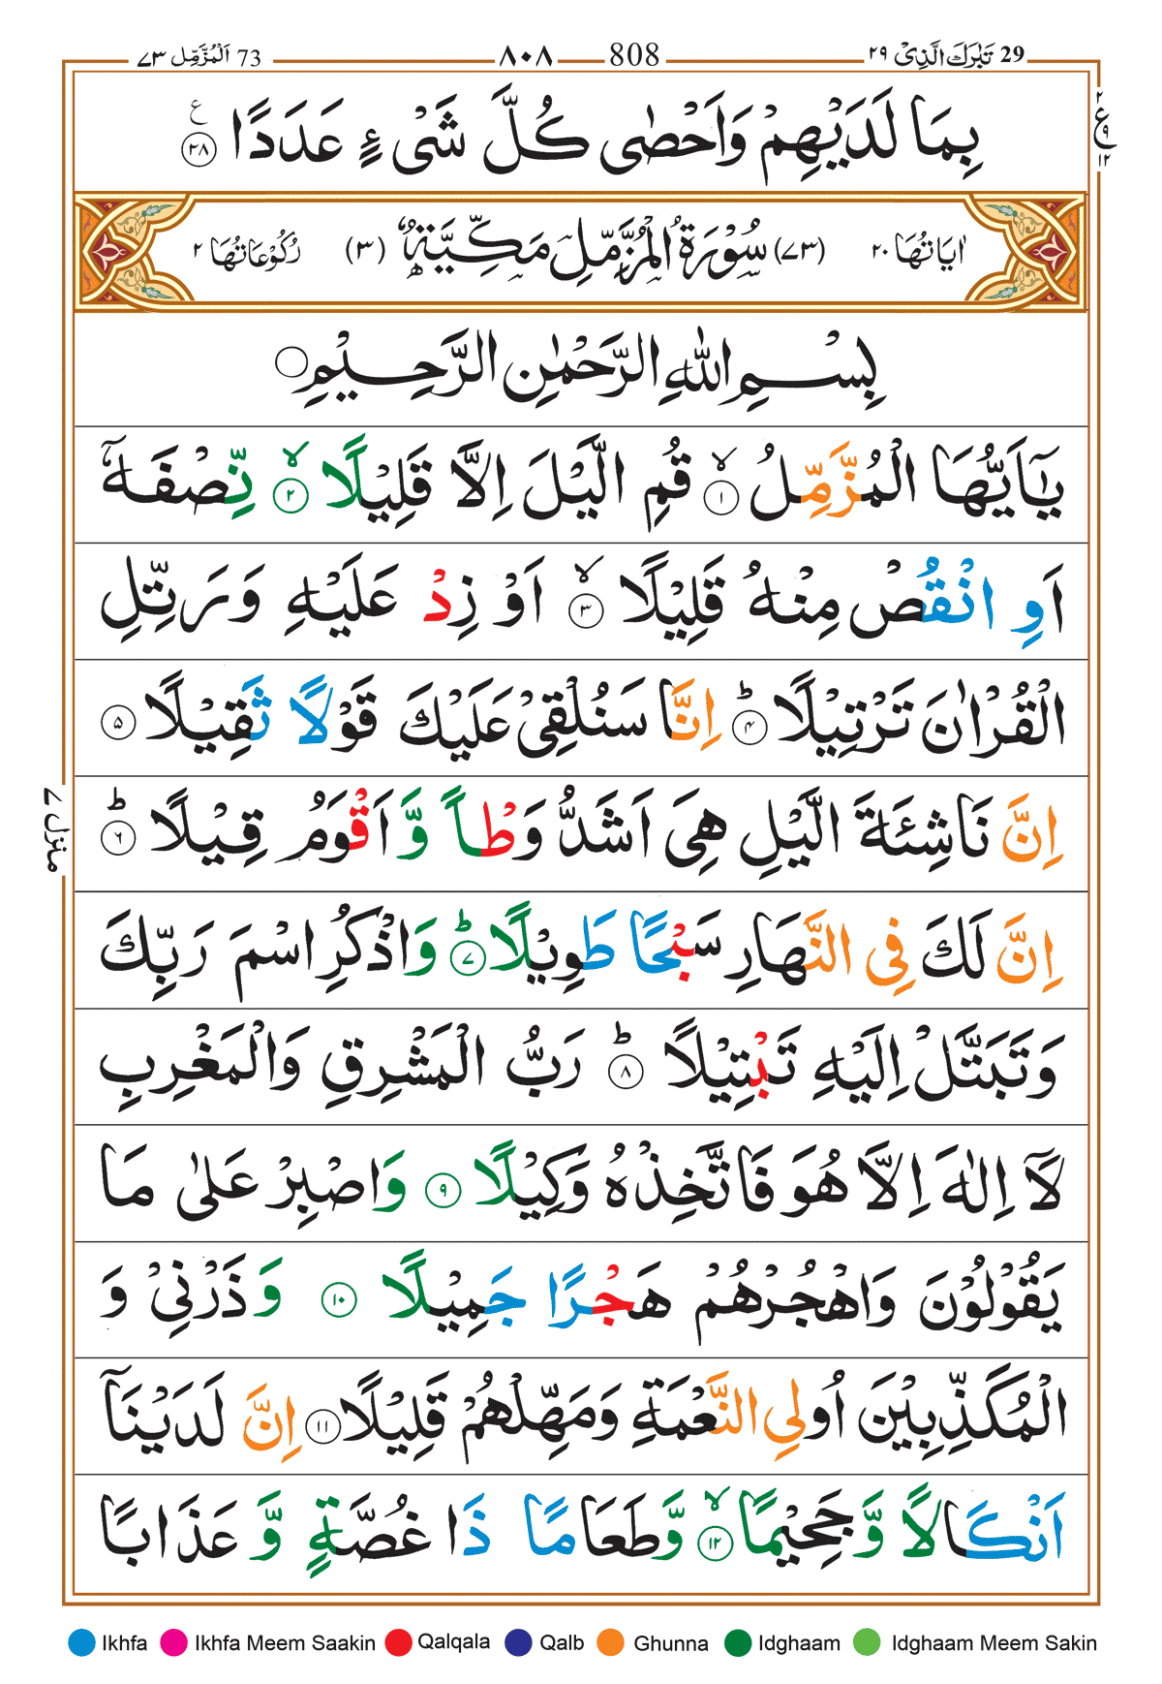 29 تَبٰرَكَ الَّذِیْ ٢٩ 808 ٨٠٨ 73 اَلْمُزَّمِّل ٧٣
بِمَا لَدَیْهِمْ وَاَحْصٰی كُلَّ شَیْءٍ عَدَدًا ٢٨ ع
٢ ع ٩ ١٢
اٰیَاتُهَا ٢٠ (٧٣) سُوْرَةُ الْمُزَّمِّلِ مَكِّیَّةٌ (٣) رُكُوْعَاتُهَا ٢
بِسْمِ اللهِ الرَّحْمٰنِ الرَّحِیْمِ
یٰۤاَیُّهَا الْمُزَّمِّلُ ۙ ١ قُمِ الَّیْلَ اِلَّا قَلِیْلًا ۙ ٢ نِّصْفَهٗۤ
اَوِ انْقُصْ مِنْهُ قَلِیْلًا ۙ ٣ اَوْ زِدْ عَلَیْهِ وَرَتِّلِ
الْقُرْاٰنَ تَرْتِیْلًا ؕ ٤ اِنَّا سَنُلْقِیْ عَلَیْكَ قَوْلًا ثَقِیْلًا ٥
اِنَّ نَاشِئَةَ الَّیْلِ هِیَ اَشَدُّ وَطْاً وَّ اَقْوَمُ قِیْلًا ؕ ٦
اِنَّ لَكَ فِی النَّهَارِ سَبْحًا طَوِیْلًا ؕ ٧ وَاذْكُرِ اسْمَ رَبِّكَ
وَتَبَتَّلْ اِلَیْهِ تَبْتِیْلًا ؕ ٨ رَبُّ الْمَشْرِقِ وَالْمَغْرِبِ
لَاۤ اِلٰهَ اِلَّا هُوَ فَاتَّخِذْهُ وَكِیْلًا ٩ وَاصْبِرْ عَلٰی مَا
یَقُوْلُوْنَ وَاهْجُرْهُمْ هَجْرًا جَمِیْلًا ١٠ وَذَرْنِیْ وَ
الْمُكَذِّبِیْنَ اُولِی النَّعْمَةِ وَمَهِّلْهُمْ قَلِیْلًا ١١ اِنَّ لَدَیْنَاۤ
اَنْكَالًا وَّجَحِیْمًا ۙ ١٢ وَّطَعَامًا ذَا غُصَّةٍ وَّ عَذَابًا
منزل ٧
Ikhfa Ikhfa Meem Saakin Qalqala Qalb Ghunna Idghaam Idghaam Meem Sakin